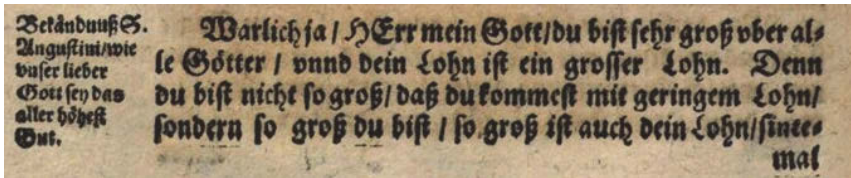 Bekändnuß S.
Augustini/wie
vnser lieber
Gott sey das
aller höhest
Gut.
Warlich ja / HErr mein Gott/du bist sehr groß vber al-
le Götter / vnnd dein Lohn ist ein grosser Lohn. Denn
du bist nicht so groß/ daß du kommest mit geringem Lohn/
sondern so groß du bist / so groß ist auch dein Lohn/sinte-
mal